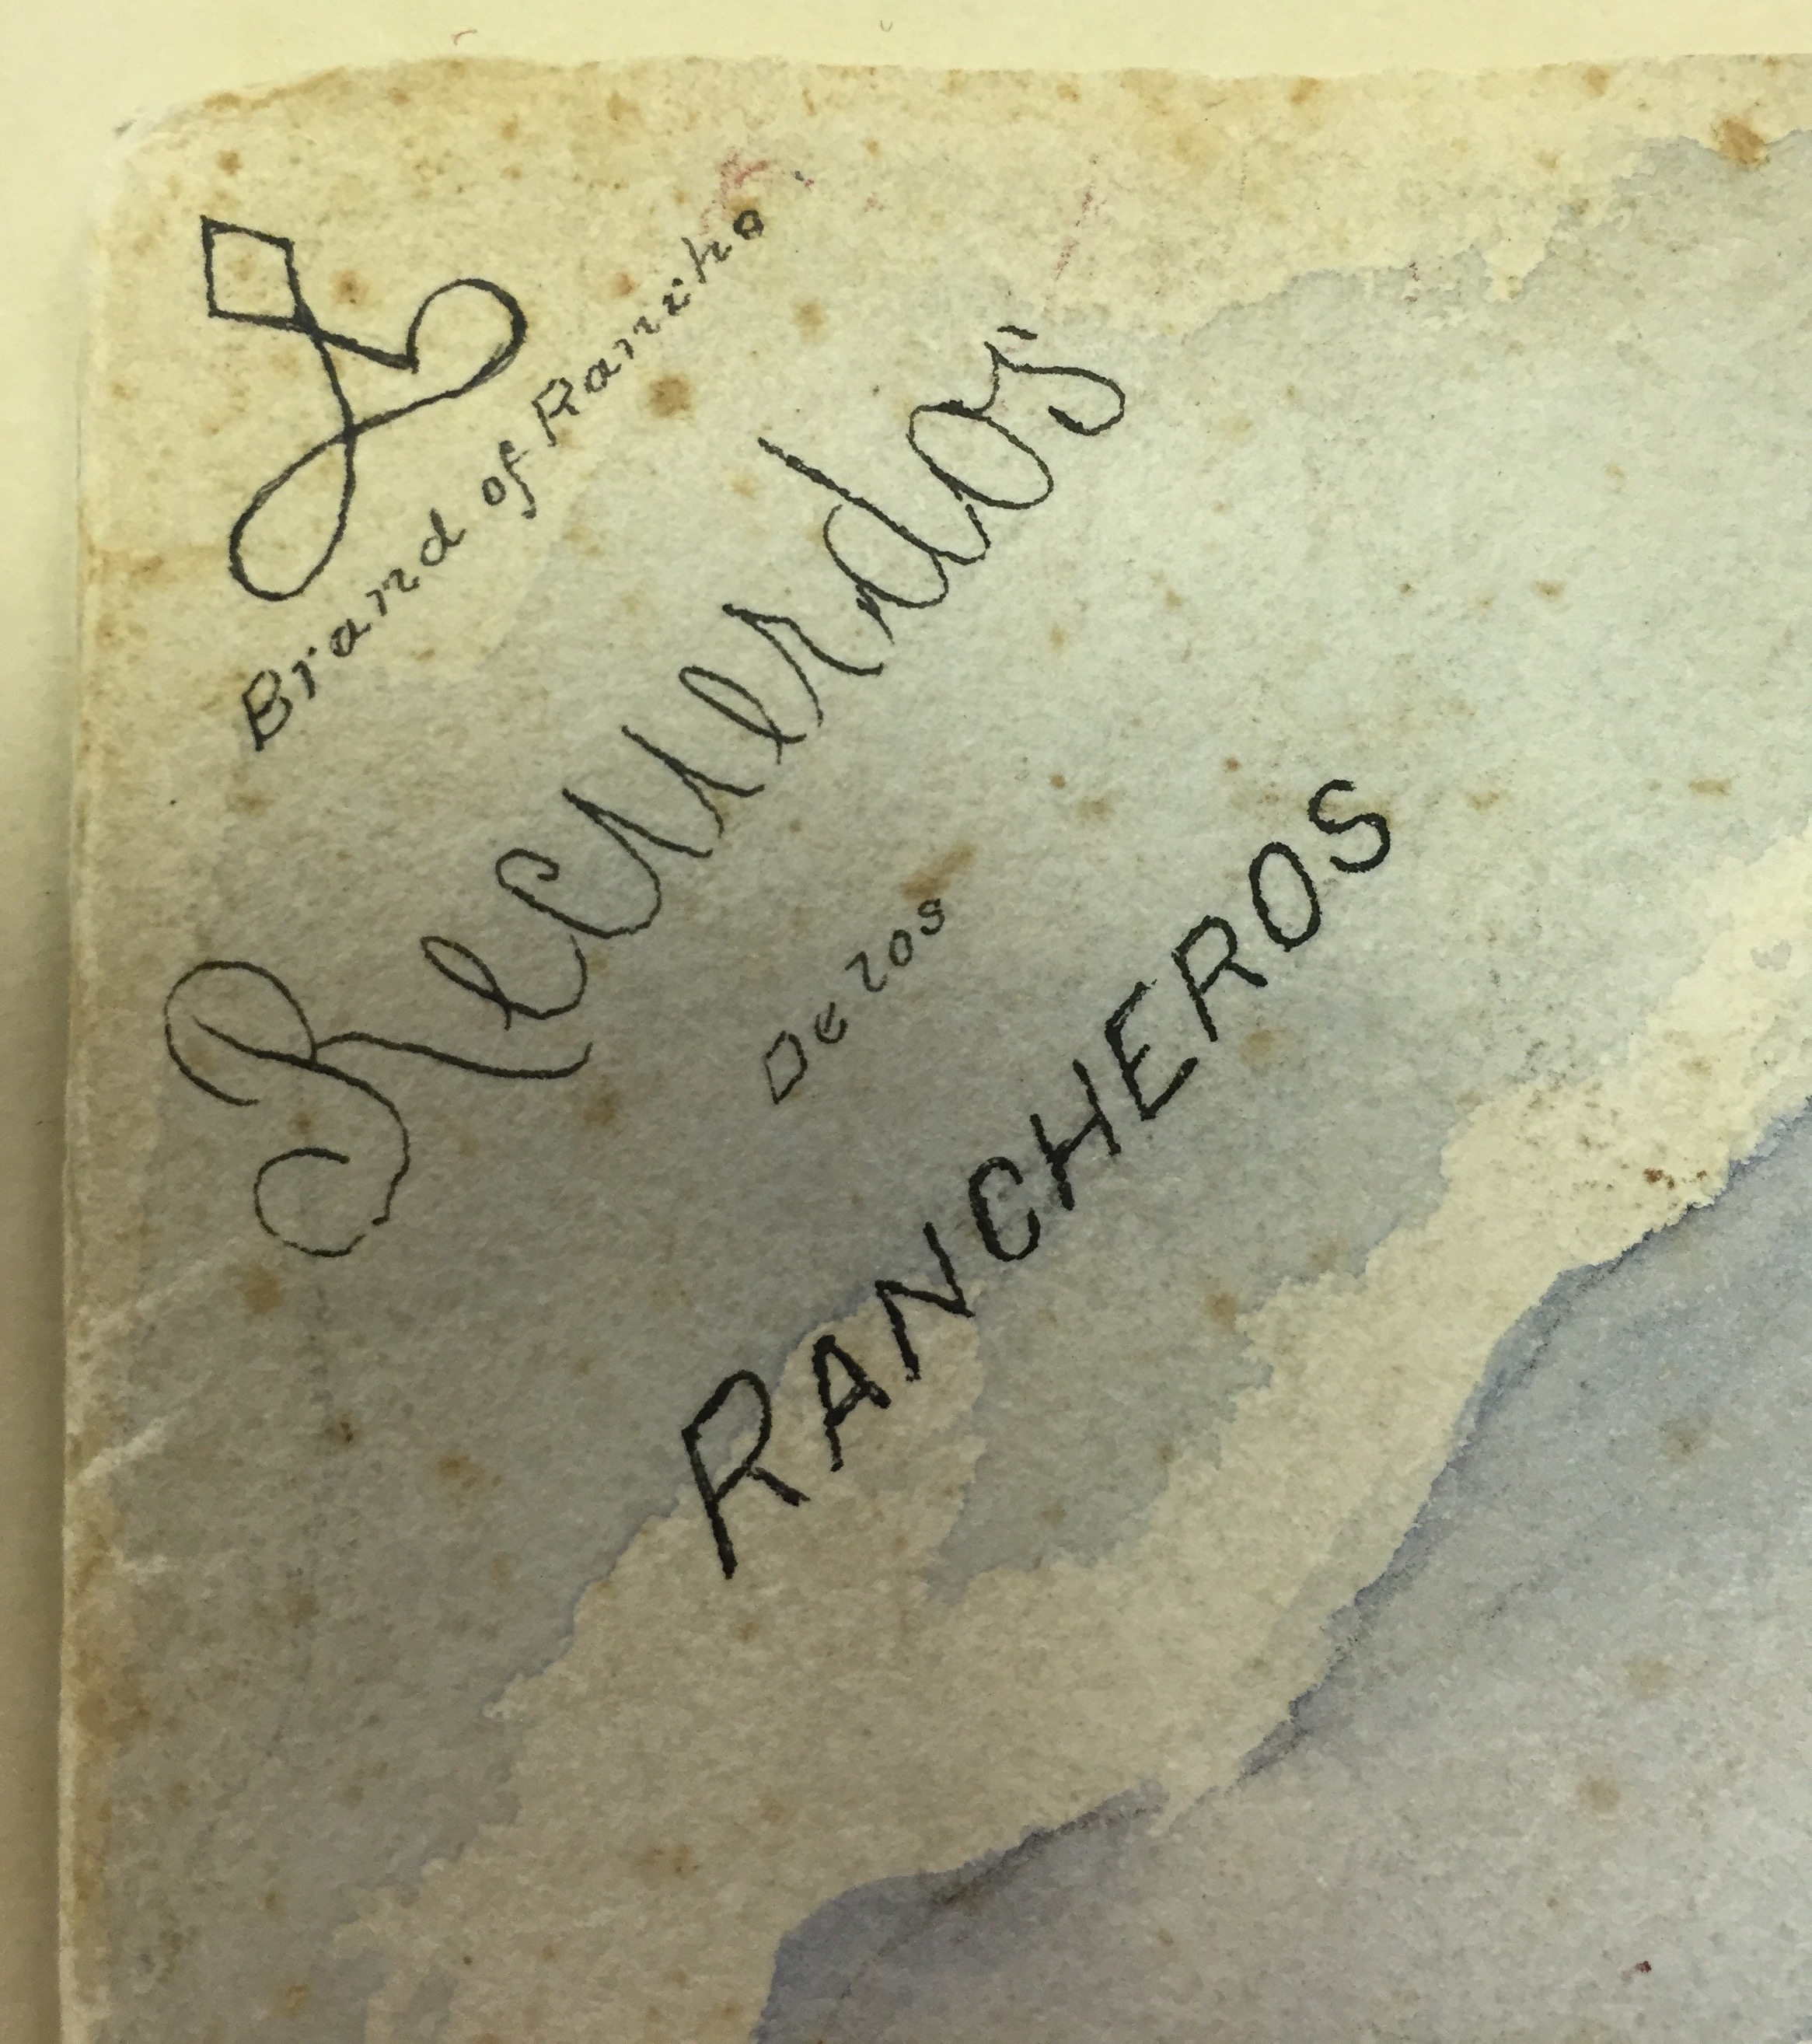 Brand of Rancho
Recuerdos
De los
RANCHEROS